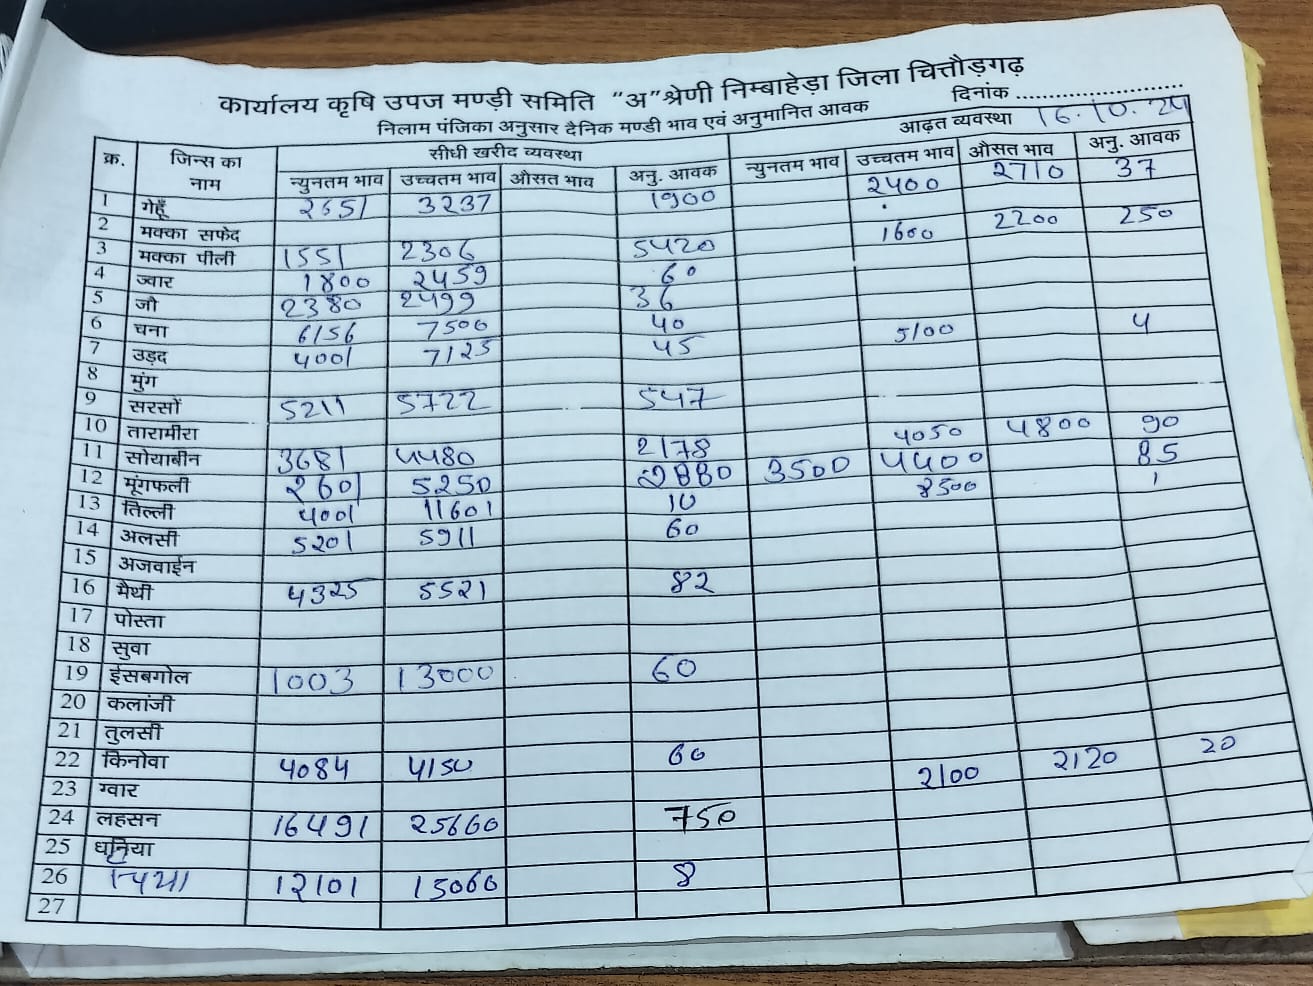 कार्यालय कृषि उपज मण्डी समिति "अ"श्रेणी निम्बाहेड़ा जिला चित्तौड़गढ़
निलाम पंजिका अनुसार दैनिक मण्डी भाव एवं अनुमानित आवक दिनांक 16.10.24
क्र. जिन्स का नाम सीधी खरीद व्यवस्था आढ़त व्यवस्था
न्युनतम भाव उच्चतम भाव औसत भाव अनु. आवक न्युनतम भाव उच्चतम भाव औसत भाव अनु. आवक
1 गेहूँ 2651 3237 1900 2400 2710 37
2 मक्का सफेद
3 मक्का पीली 1551 2306 5420 1600 2200 250
4 ज्वार 1800 2459 60
5 जौ 2380 2499 36
6 चना 6156 7500 40
7 उड़द 4001 7125 45 5100 4
8 मुंग
9 सरसों 5211 5722 547
10 तारामीरा
11 सोयाबीन 3681 4480 2178 4050 4800 90
12 मूंगफली 2601 5250 2880 3500 4400 85
13 तिल्ली 4001 11601 10 8500 1
14 अलसी 5201 5911 60
15 अजवाईन
16 मैथी 4325 5521 82
17 पोस्ता
18 सुवा
19 ईसबगोल 1003 13000 60
20 कलांजी
21 तुलसी
22 किनोवा 4084 4150 60
23 ग्वार 2100 2120 20
24 लहसन 16491 25660 750
25 धनिया
26 12101 15060 8
27